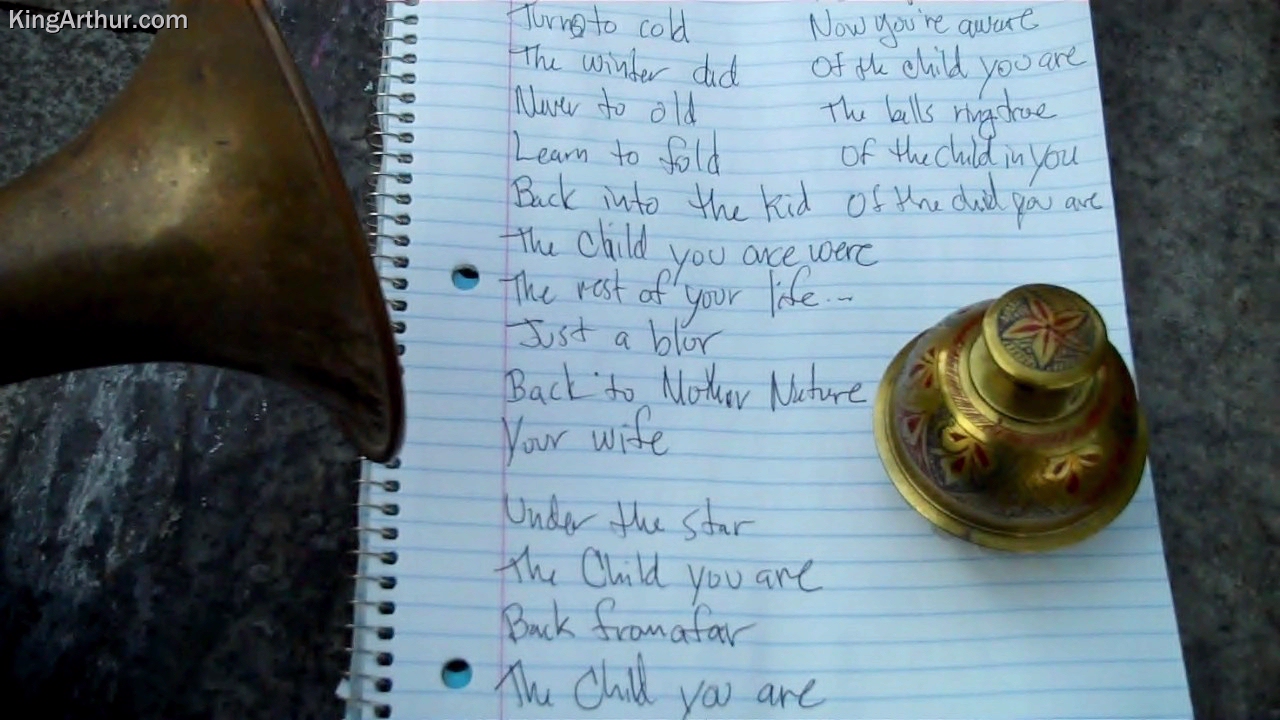 KingArthur.com
Turns to cold
The winter did
Never to old
Learn to fold
Back into the kid
The Child you are were
The rest of your life...
Just a blur
Back to Mother Nature
Your wife
Under the star
The Child you are
Back from afar
The Child you are
Now you're aware
Of the child you are
The bells ring true
Of the child in you
Of the child you are